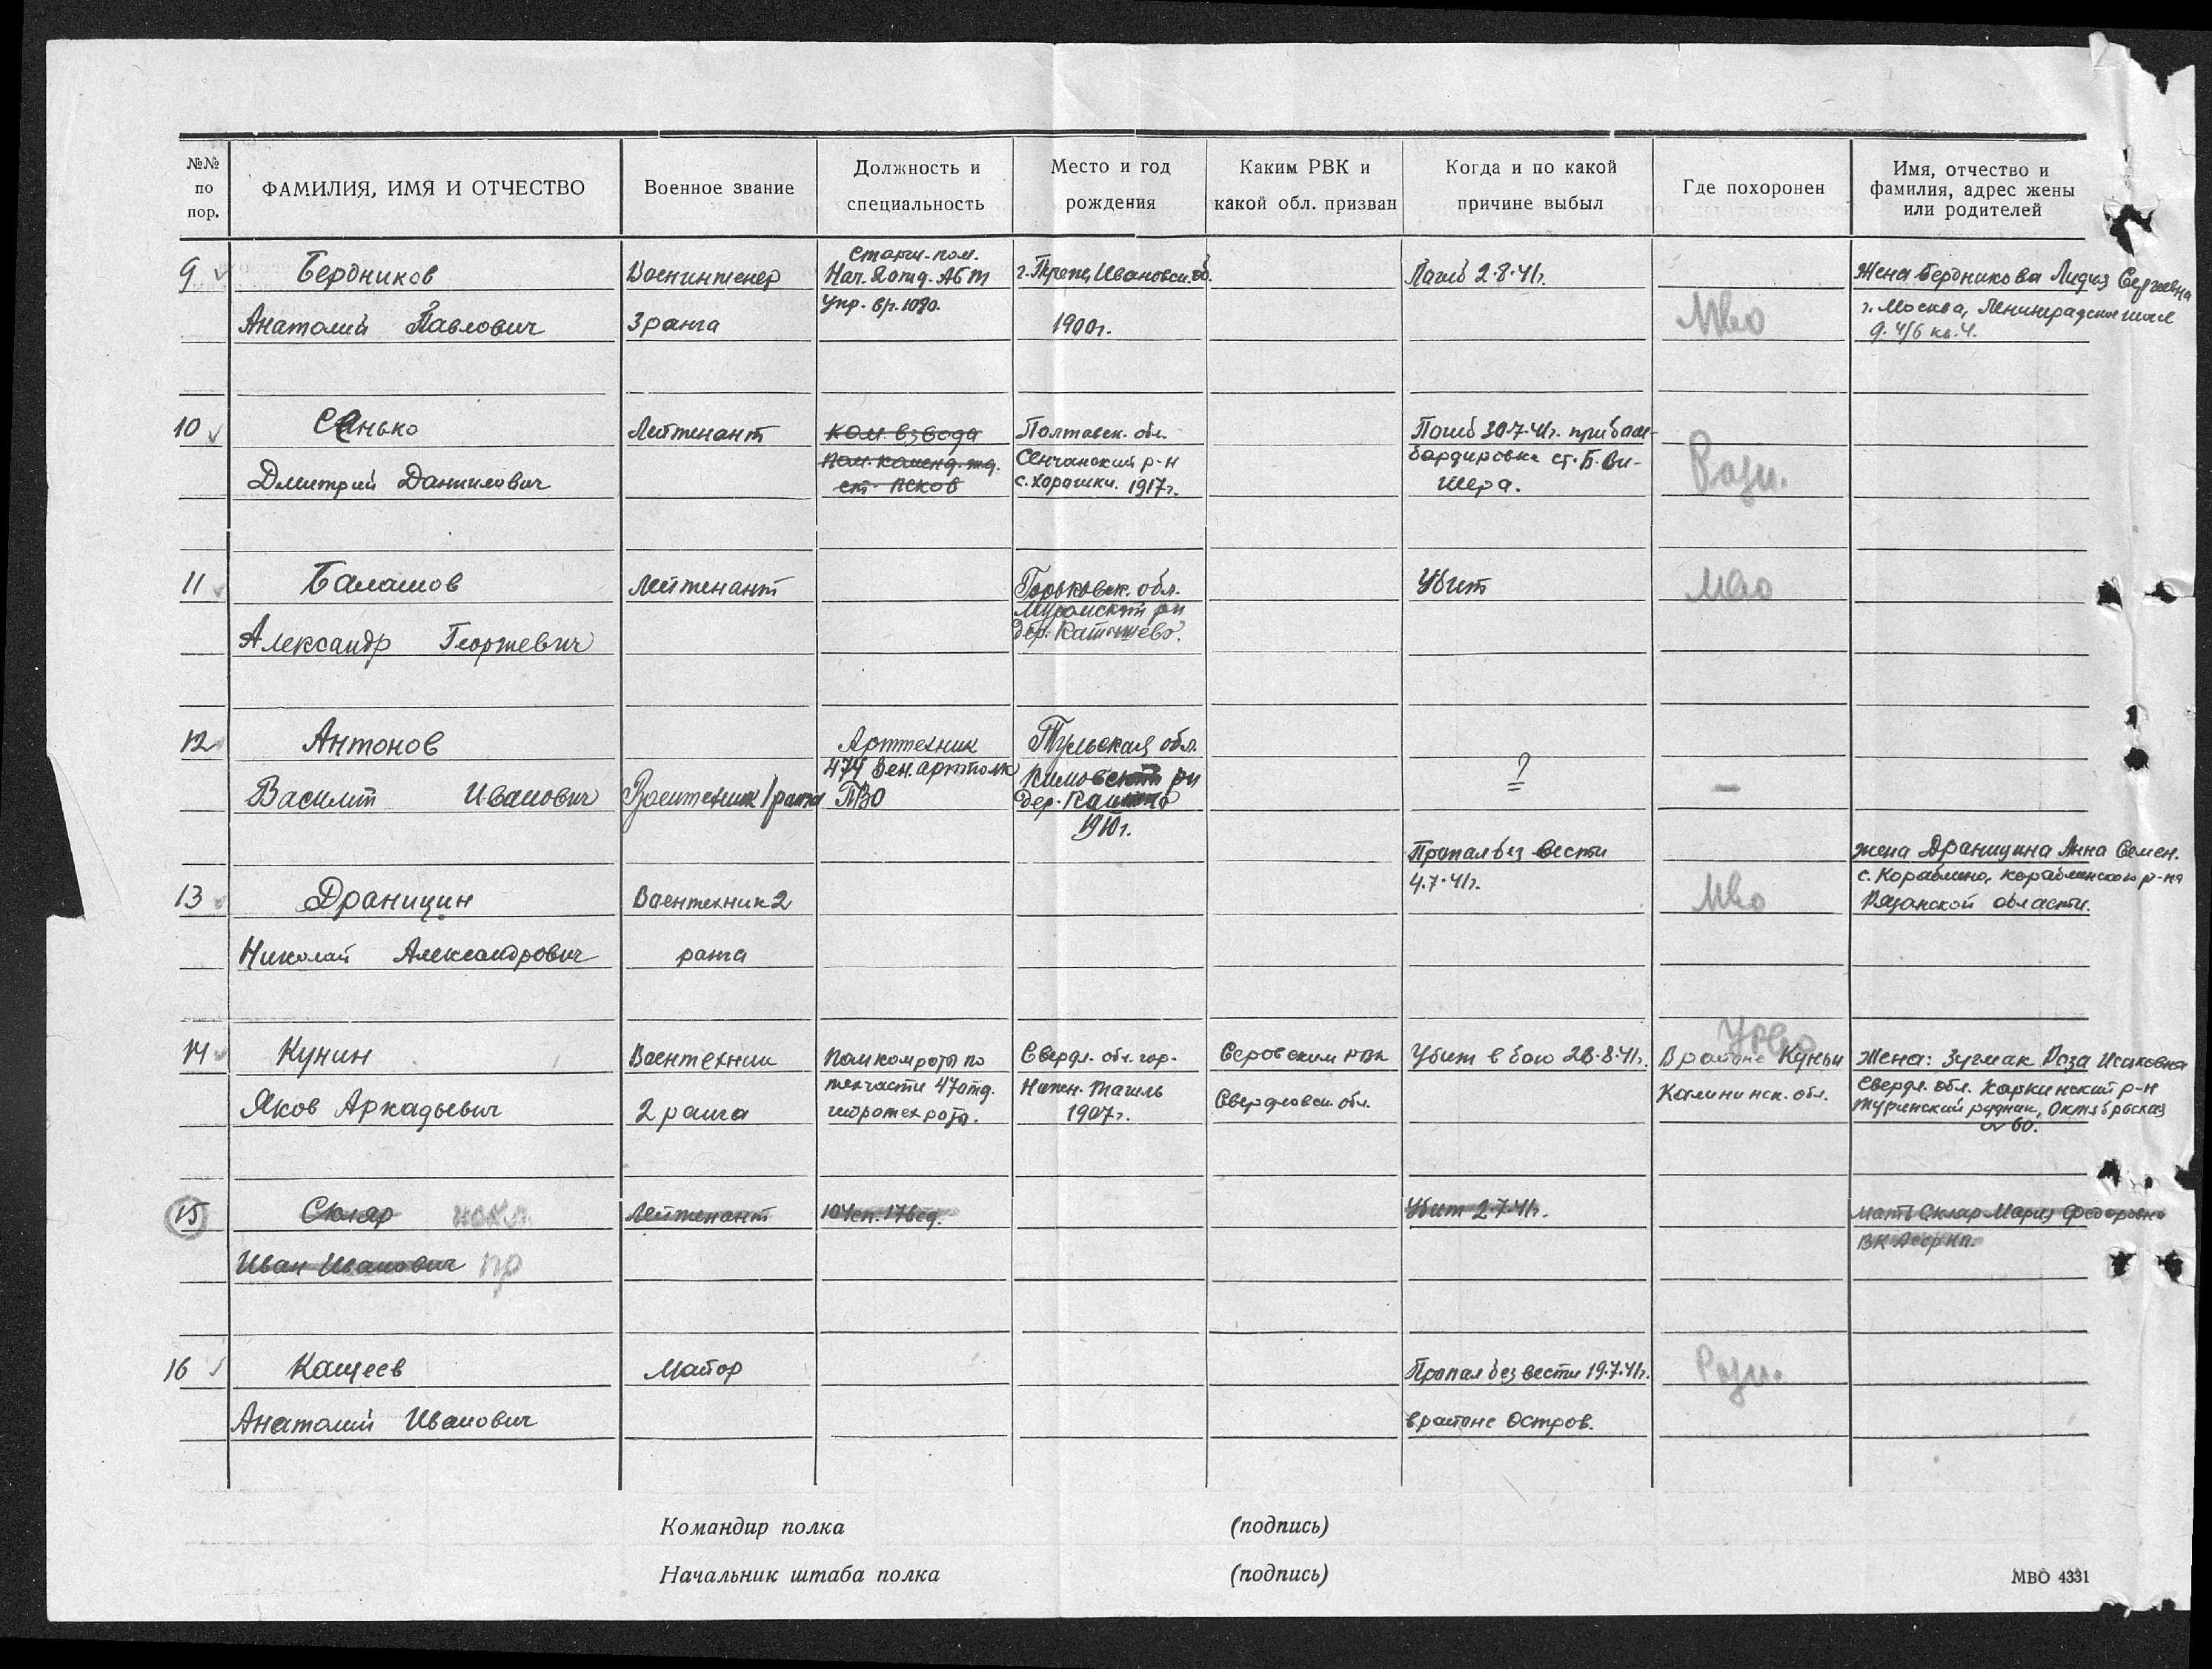 №№ по пор.
ФАМИЛИЯ, ИМЯ И ОТЧЕСТВО
Военное звание
Должность и специальность
Место и год рождения
Каким РВК и какой обл. призван
Когда и по какой причине выбыл
Где похоронен
Имя, отчество и фамилия, адрес жены или родителей
9
Бердников
Анатолий Павлович
Военинженер
3 ранга
Старш. пом.
Нач. 2 отд. АБТ
Упр.
Ивановск. об.
1900г.
Погиб 2.8.41г.
МВО
Жена Бердникова Лидия Сергеевна
г. Москва, Ленинградское шоссе
д. 4/6 кв. 4.
10
Сенько
Дмитрий Данилович
Лейтенант
Ком. взвода
пом. коменд.
ст. Псков
Полтавск. обл.
Сенчанский р-н
с. Хорошки. 1917г.
Погиб 30.7.41г. при бом-
бардировке ст. Б. Ви-
шера.
Розы.
11
Балашов
Александр Георгиевич
Лейтенант
Горьковск. обл.
Муромский рн
дер.
Убит
МВО
12
Антонов
Василий Иванович
Воентехник 1 ранга
Арттехник
474 Зен. артполк
ПВО
Тульская обл.
Кимовский рн
дер.
1910г.
?
—
13
Драницин
Николай Александрович
Воентехник 2
ранга
Пропал без вести
4.7.41г.
МВО
жена Драницина Анна Семен.
с. Кораблино, Кораблинского р-на
Рязанской области.
14
Кунин
Яков Аркадьевич
Воентехник
2 ранга
Пом ком роты по
техчасти 47 отд.
гидротех рота.
Свердл. обл. гор.
Нижн. Тагиль
1907г.
Серовским РВК
Свердловск. обл.
Убит в бою 28.8.41г.
УрВО
В районе Куньи
Калининск. обл.
Жена: Зугмак Роза Исаковна
Свердл. обл. Карпинский р-н
Туринский рудник, Октябрьская
№ 60.
15
Скляр
Иван Иванович
Лейтенант
104 сп. 176 сд.
Убит 2.7.41г.
мать Скляр Мария Федоровна
16
Кащеев
Анатолий Иванович
Майор
Пропал без вести 19.7.41г.
в районе Остров.
Розы.
Командир полка (подпись)
Начальник штаба полка (подпись)
МВО 4331